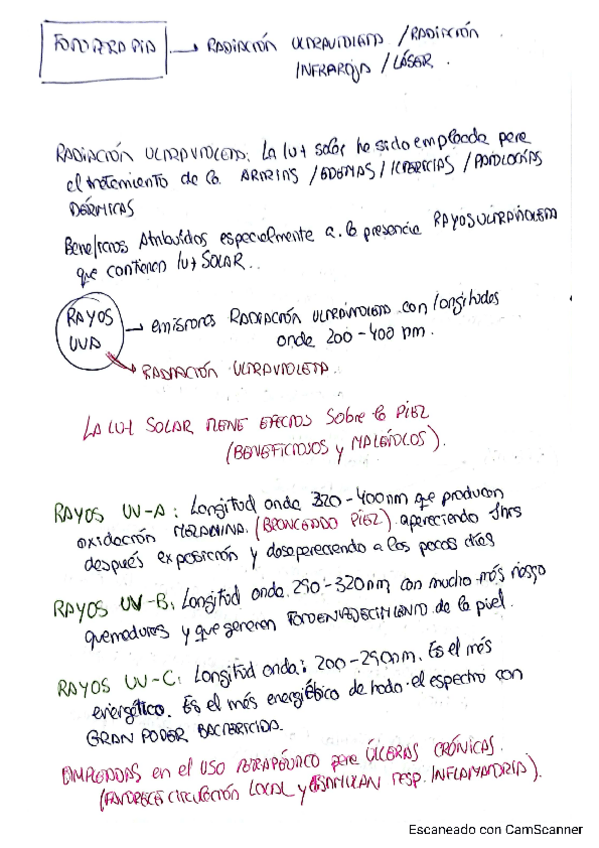 FOTOTERAPIA → RADIACIÓN ULTRAVIOLETA / RADIACIÓN
INFRAROJA / LÁSER.
RADIACIÓN ULTRAVIOLETA: La luz solar ha sido empleada para
el tratamiento de la ARTRITIS / EDEMAS / ICTERICIAS / PATOLOGÍAS
DÉRMICAS
Beneficios Atribuidos especialmente a la presencia RAYOS ULTRAVIOLETA
que contienen luz SOLAR..
RAYOS
UVA
→ emisiones RADIACIÓN ULTRAVIOLETA con longitudes
onda 200-400 nm.
→ RADIACIÓN ULTRAVIOLETA.
LA LUZ SOLAR TIENE EFECTOS Sobre la PIEL
(BENEFICIOSOS y MALÉFICOS).
RAYOS UV-A: Longitud onda 320-400nm que producen
oxidación MELANINA. (BRONCEADO PIEL) apareciendo 1hrs
después exposición y desapereciendo a los pocos días
RAYOS UV-B: Longitud onda 290-320nm con mucho más riesgo
quemaduras y que generen FOTOENVEJECIMIENTO de la piel.
RAYOS UV-C: Longitud onda: 200-290nm. Es el más
energético. Es el más energético de todo el espectro con
GRAN PODER BACTERICIDA.
EMPLEADAS en el USO TERAPÉUTICO para ÚLCERAS CRÓNICAS.
(FAVORECE CIRCULACIÓN LOCAL y ESTIMULAN resp. INFLAMATORIA).
Escaneado con CamScanner